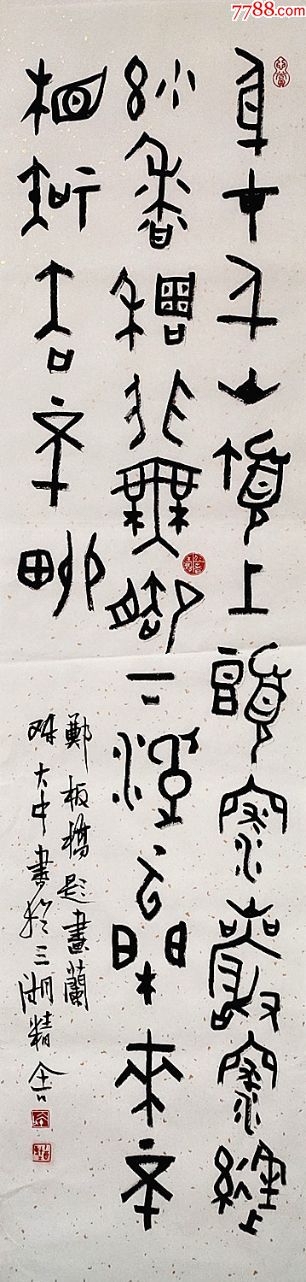 7788.com
身在千山頂上頭深巖深縫
妙香稠非無腳下浮雲鬧來不
相知去不留
鄭板橋題畫蘭
大中書於三湖精舍